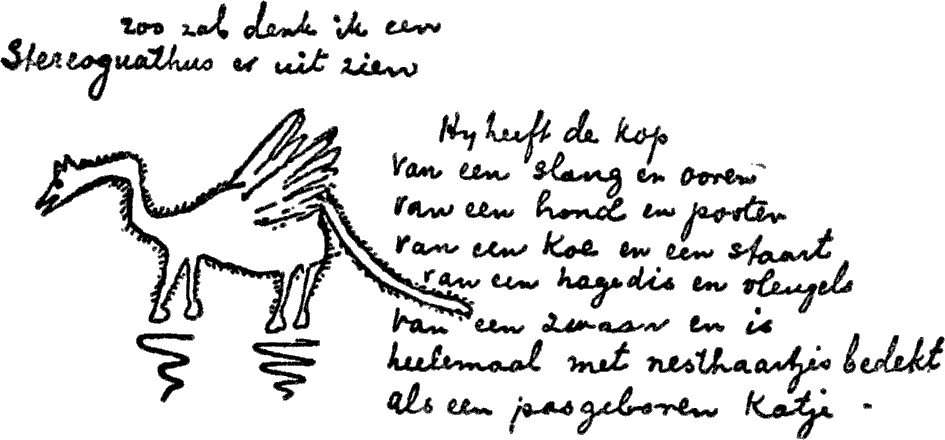 zoo zal denk ik een
Stereognathus er uit zien
Hy heeft de kop
van een slang en ooren
van een hond en pooten
van een koe en een staart
van een hagedis en vleugels
van een zwaan en is
heelemaal met nesthaartjes bedekt
als een pasgeboren Katje -